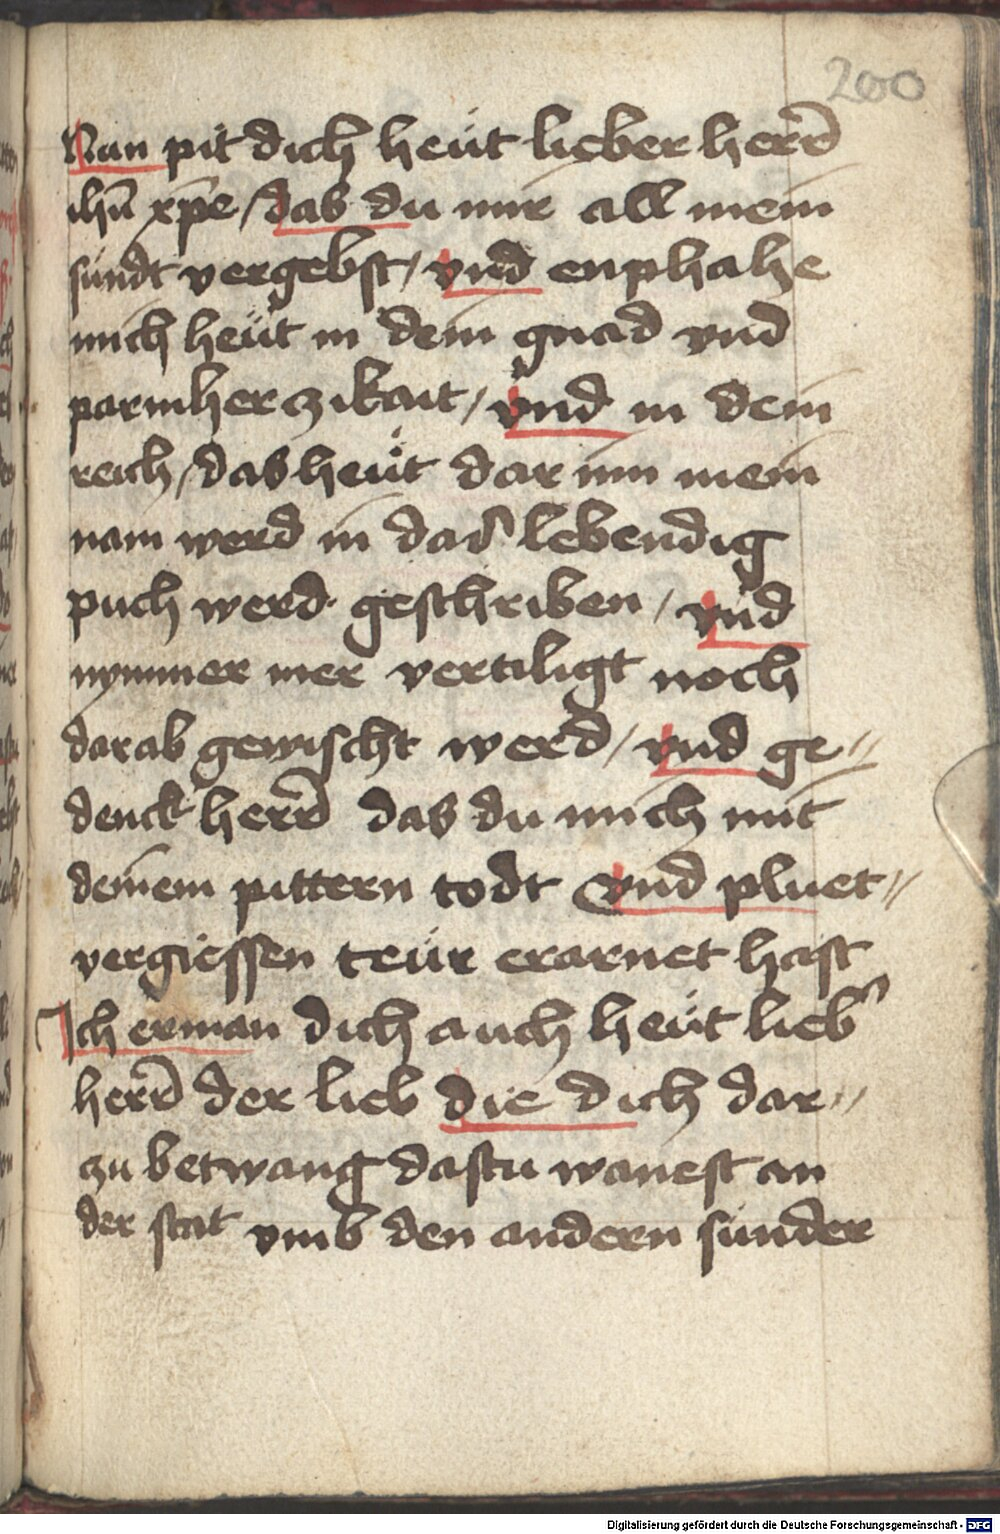 200
Nun pit dich heüt lieber herr̄
ihū xp̄e / das du mir all mein
sündt vergebst / vnd enphahe
mich heüt in dein gnad vnd
parmherczikait / vnd in dein
reich / das heüt dar inn mein
nam werd in das lebendig
puch werd geschriben / vnd
nymmer mer vertiligt noch
darab gewischt werd / vnd ge-
denck herr̄ das du mich mit
deinem pittern todt vnd pluet-
vergiessen teür erarnet hast
Ich erman dich auch heüt lieb'
herr̄ der lieb die dich dar-
zu betwang dastu
der stat vmb den andern sünder
Digitalisierung gefördert durch die Deutsche Forschungsgemeinschaft - DFG